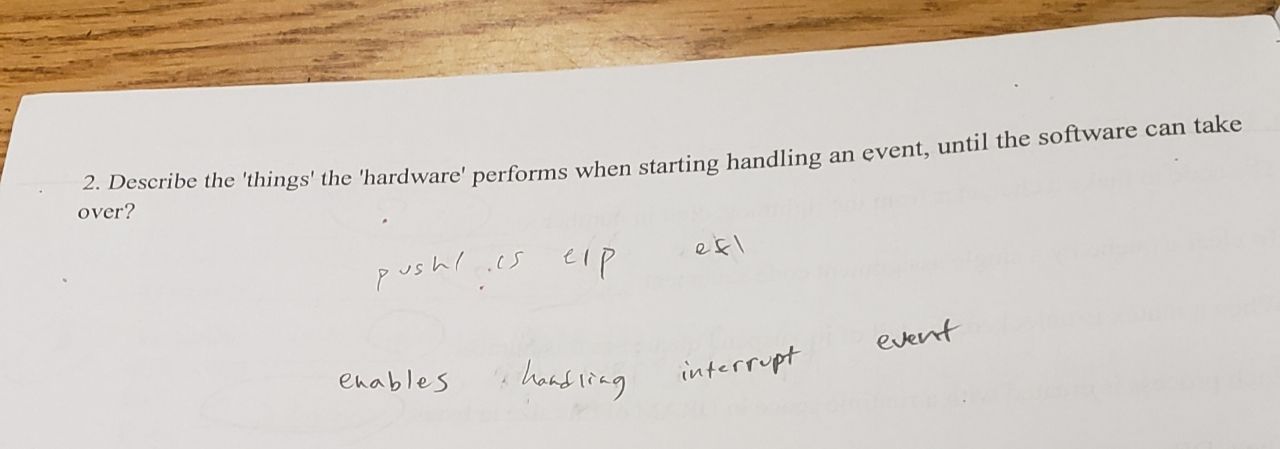 2. Describe the 'things' the 'hardware' performs when starting handling an event, until the software can take
over?
pushl cs eip efl
enables handling interrupt event